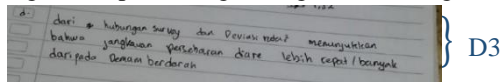 d. dari hubungan survey dan Deviasi menunjukkan
bahwa jangkauan persebaran diare lebih cepat/banyak
daripada Demam berdarah
D3